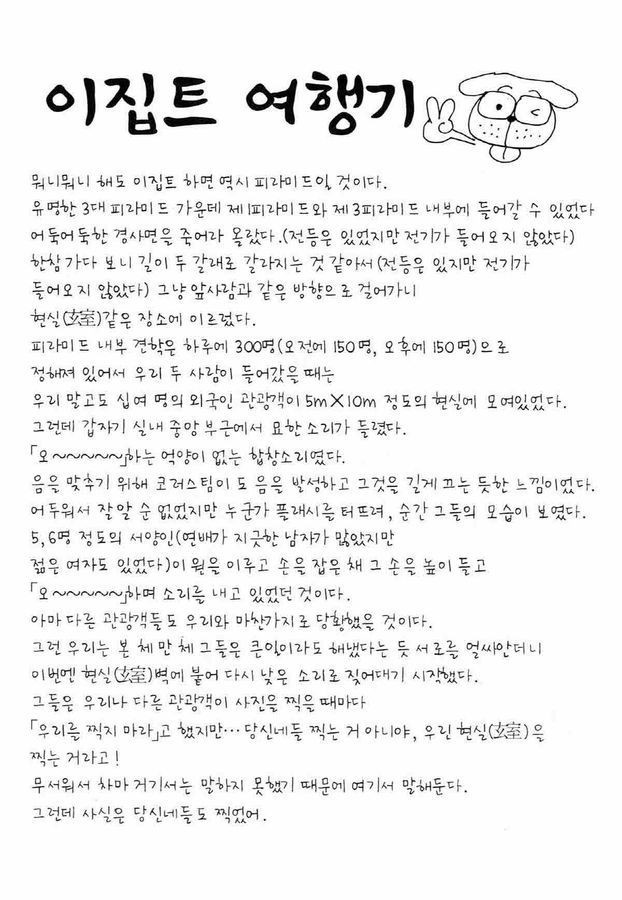 이집트 여행기
뭐니뭐니 해도 이집트 하면 역시 피라미드일 것이다.
유명한 3대 피라미드 가운데 제1피라미드와 제3피라미드 내부에 들어갈 수 있었다
어둑어둑한 경사면을 죽어라 올랐다.(전등은 있었지만 전기가 들어오지 않았다)
한참 가다 보니 길이 두 갈래로 갈라지는 것 같아서(전등은 있지만 전기가
들어오지 않았다) 그냥 앞사람과 같은 방향으로 걸어가니
현실(玄室)같은 장소에 이르렀다.
피라미드 내부 견학은 하루에 300명(오전에 150명, 오후에 150명)으로
정해져 있어서 우리 두 사람이 들어갔을 때는
우리 말고도 십여 명의 외국인 관광객이 5m×10m 정도의 현실에 모여있었다.
그런데 갑자기 실내 중앙 부근에서 묘한 소리가 들렸다.
「오~~~~~」하는 억양이 없는 합창소리였다.
음을 맞추기 위해 코러스팀이 도 음을 발성하고 그것을 길게 끄는 듯한 느낌이었다.
어두워서 잘 알 수 없었지만 누군가 플래시를 터뜨려, 순간 그들의 모습이 보였다.
5,6명 정도의 서양인(연배가 지긋한 남자가 많았지만
젊은 여자도 있었다)이 원을 이루고 손을 잡은 채 그 손을 높이 들고
「오~~~~~」하며 소리를 내고 있었던 것이다.
아마 다른 관광객들도 우리와 마찬가지로 당황했을 것이다.
그런 우리는 본 체 만 체 그들은 큰일이라도 해냈다는 듯 서로를 얼싸안더니
이번엔 현실(玄室)벽에 붙어 다시 낮은 소리로 짖어대기 시작했다.
그들은 우리나 다른 관광객이 사진을 찍을 때마다
「우리를 찍지 마라」고 했지만… 당신네들 찍는 거 아니야, 우린 현실(玄室)을
찍는 거라고!
무서워서 차마 거기서는 말하지 못했기 때문에 여기서 말해둔다.
그런데 사실은 당신네들도 찍었어.